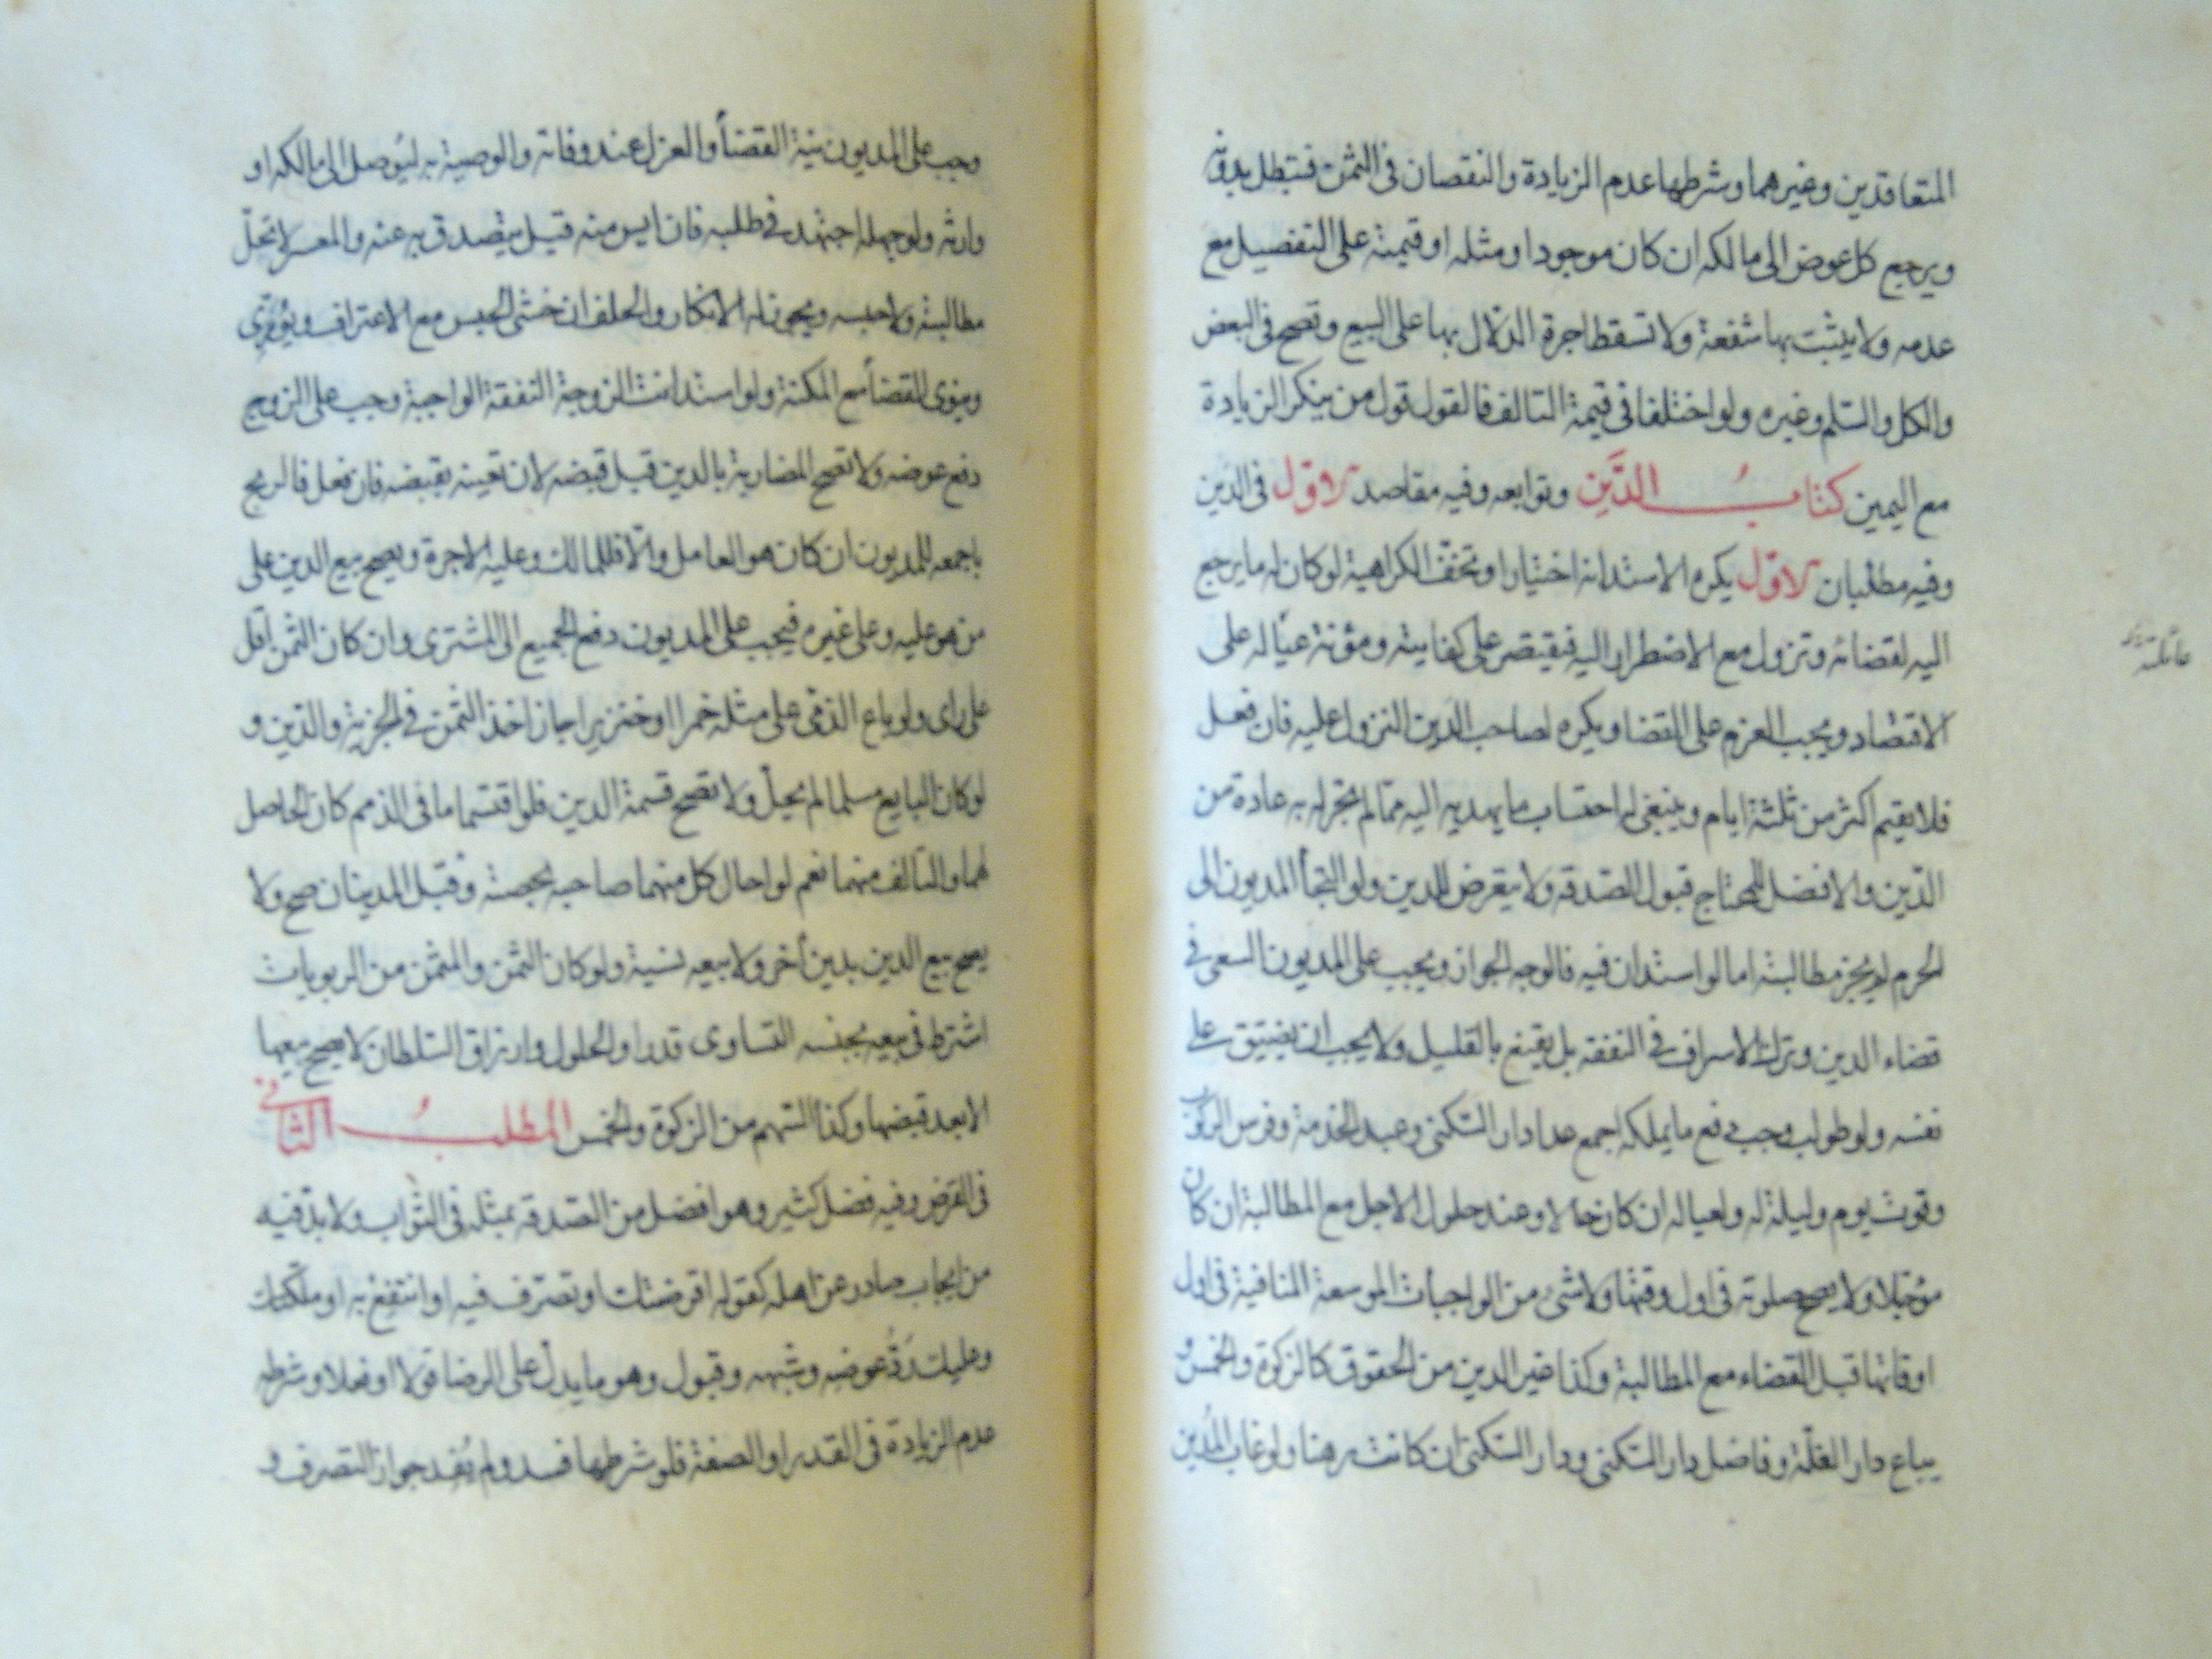 المتعاقدين وغيرهما وشرطها عدم الزيادة والنقصان فى الثمن فتبطل بدونه
ويرجع كل عوض الى مالكه ان كان موجودا ومثله او قيمته على التفصيل مع
عدمه ولا يثبت بها شفعة ولا تسقط اجرة الدلال بها على البيع وتصح فى البعض
والكل والسلم وغيره ولو اختلفا فى قيمة التالف فالقول قول من ينكر الزيادة
مع اليمين كتاب الدَّين وتوابعه وفيه مقاصد الاوّل فى الدين
وفيه مطلبان الاوّل يكره الاستدانة اختيارا وتخفّ الكراهية لو كان له ما يرجع
اليه لقضائه وتزول مع الاضطرار اليه فيقتصر على كفايته ومؤنة عياله على
الاقتصاد ويجب العزم على القضا ويكره لصاحب الدين النزول عليه فان فعل
فلا يقيم اكثر من ثلثة ايام وينبغى له احتساب ما يهديه اليه ممّا لم تجر له به عادة من
الدّين والافضل للمحتاج قبول الصّدقة ولا يتعرض للدين ولو التجأ المديون الى
الحرم لم يجز مطالبته اما لو استدان فيه فالوجه الجواز ويجب على المديون السعى فى
قضاء الدين وترك الاسراف فى النفقة بل يقنع بالقليل ولا يجب ان يضيق على
نفسه ولو طولب وجب دفع ما يملكه اجمع عدا دار السّكنى وعبد الخدمة وفرس الركوب
وقوت يوم وليلة له ولعياله ان كان حالا وعند حلول الاجل مع المطالبة ان كان
مؤجلا ولا يصح صلوته فى اول وقتها ولا شىء من الواجبات الموسعة المنافية فى اول
اوقاتها قبل القضاء مع المطالبة وكذا غير الدين من الحقوق كالزكوة والخمس و
يباع دار الغلّة وفاضل دار السّكنى ودار السّكنى ان كانت رهنا ولو غاب المدين
عائلته
وجب على المديون نية القضأ والعزل عند وفاته والوصية به ليُوصل الى مالكه او
وارثه ولو جهله اجتهد فى طلبه فان ايس منه قيل يتصدق به عنه والمعسر لا تحلّ
مطالبته ولا حبسه ويجوز له الانكار والحلف ان خشى الحبس مع الاعتراف ويُورّى
وينوى القضأ مع المكنة ولو استدانت الزوجة النفقة الواجبة وجب على الزوج
دفع عوضه ولا تصح المضاربة بالدين قبل قبضه لان تعينه بقبضه فان فعل فالربح
باجمعه للمديون ان كان هو العامل والّا فللمالك وعليه الاجرة ويصح بيع الدين على
من هو عليه وعلى غيره فيجب على المديون دفع الجميع الى المشترى وان كان الثمن اقل
على راى ولو باع الذمّى على مثله خمرا او خنزيرا جاز اخذ الثمن فى الجزية والدّين و
لو كان البايع مسلما لم يحلّ ولا تصح قسمة الدين فلو اقتسما ما فى الذمم كان الحاصل
لهما والتالف منهما نعم لو احال كل منهما صاحبه بحصته وقبل المدينان صح ولا
يصح بيع الدين بدين اخر ولا بيعه نسية ولو كان الثمن والمثمن من الربويات
اشترط فى بيعه بجنسه التساوى قدرا والحلول وارزاق السلطان لا يصح بيعها
الا بعد قبضها وكذا السّهم من الزكوة والخمس المطلبُ الثانى
فى القرض وفيه فضل كثير وهو افضل من الصدقة بمثله فى الثّواب ولا بدّ فيه
من ايجاب صادر عن اهله كقوله اقرضتك او تصرّف فيه او انتفع به او ملّكتك
وعليك ردُّ عوضه وشبهه وقبول وهو ما يدل على الرضا قولا او فعلا وشرطه
عدم الزيادة فى القدر او الصفة فلو شرطها فسد ولم يُفِد جواز التصرف و